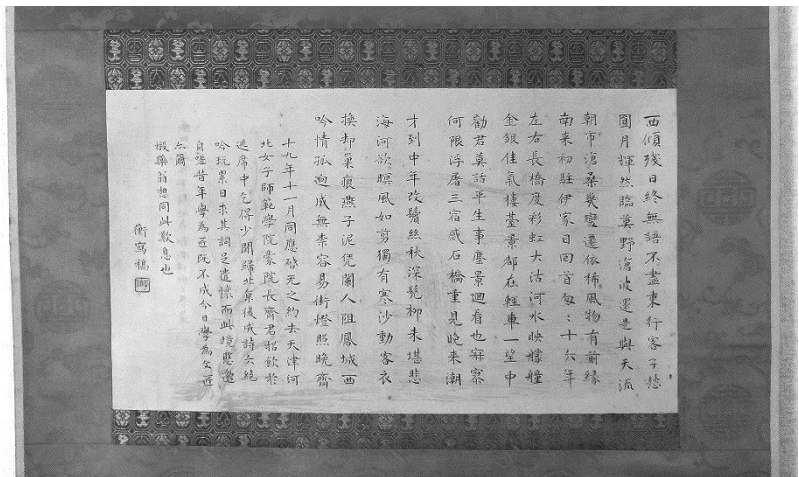 西傾殘日終無語不盡東行客子愁
圓月輝然臨莫野滄波還是與天流
朝市滄桑幾變遷依稀風物有前緣
南來初駐伊家日回首匆〻十六年
左右長橋度彩虹大沽河水映艨艟
金銀佳氣樓臺景都在輕車一望中
勸君莫話平生事塵景迴看也寂寥
何限浮屠三宿感石橋重見晚來潮
才到中年改鬢絲秋深髡柳未堪悲
海河欲暝風如剪獨有寒沙動客衣
換却巢痕燕子泥凭闌人阻鳳城西
吟情孤迥成無柰容易街燈照晚齊
十九年十一月同應啓无之約去天津河
北女子師範學院蒙院長齊君招飲於
席中乞得少閒歸北京後成詩六絕
吟玩累日求其詞足遣懷而興境悲
自昔年學為既不成今日學為文
云爾
翁想同此歎息也
衡寫稿